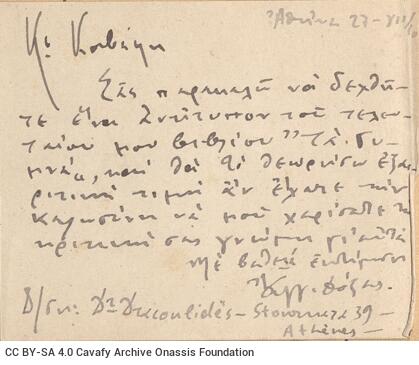 Ἀθήνα 27-VII/
Κε Καβάφη
Σᾶς παρακαλῶ νὰ δεχθῆ-
τε ἕνα ἀντίτυπον τοῦ τελευ-
ταίου μου βιβλίου "Τὰ Γυ-
μνά", καὶ θὰ τὸ θεωρήσω ἐξαι-
ρετικὴ τιμὴ ἂν ἔχετε τὴν
καλωσύνη νὰ μοῦ χαρίσετε τὴ
κριτική σας γνώμη γι' αὐτά
Μὲ βαθειὰ ἐκτίμηση
Δόξας.
Δ/σις: Dr Dracoulidès - Stournara 39 -
Athènes -
CC BY-SA 4.0 Cavafy Archive Onassis Foundation